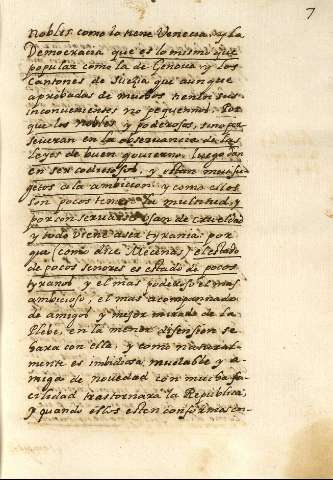 7
nobles como lo tiene Venecia, y la
Democracia que es lo mismo que
popular como la de Genova y los
Cantones de Suezia que aunque
aprobadas de muchos tienen sus
inconvenientes no pequeños. Por
que los nobles y poderosos, sino per
seueran en la obseruancia de las
leyes de buen gouierno, luego dan
en ser codiciosos, y estan muy su
getos a la ambicion y como ellos
son pocos temen la multitud, y
por conseruarse usan de crueldad
y todo viene a ser tyrania por
que (como dice Mecenas) el estado
de pocos señores es estado de pocos
tyranos y el mas poderoso el mas
ambicioso, el mas acompañado
de amigos y mejor mirado de la
Plebe, en la menor disension se
hara con ella, y como natural-
mente es imbidiosa, mudable y a-
miga de novedad con mucha fa-
cilidad trastornara la Republica,
y quando ellos estan conformes en-